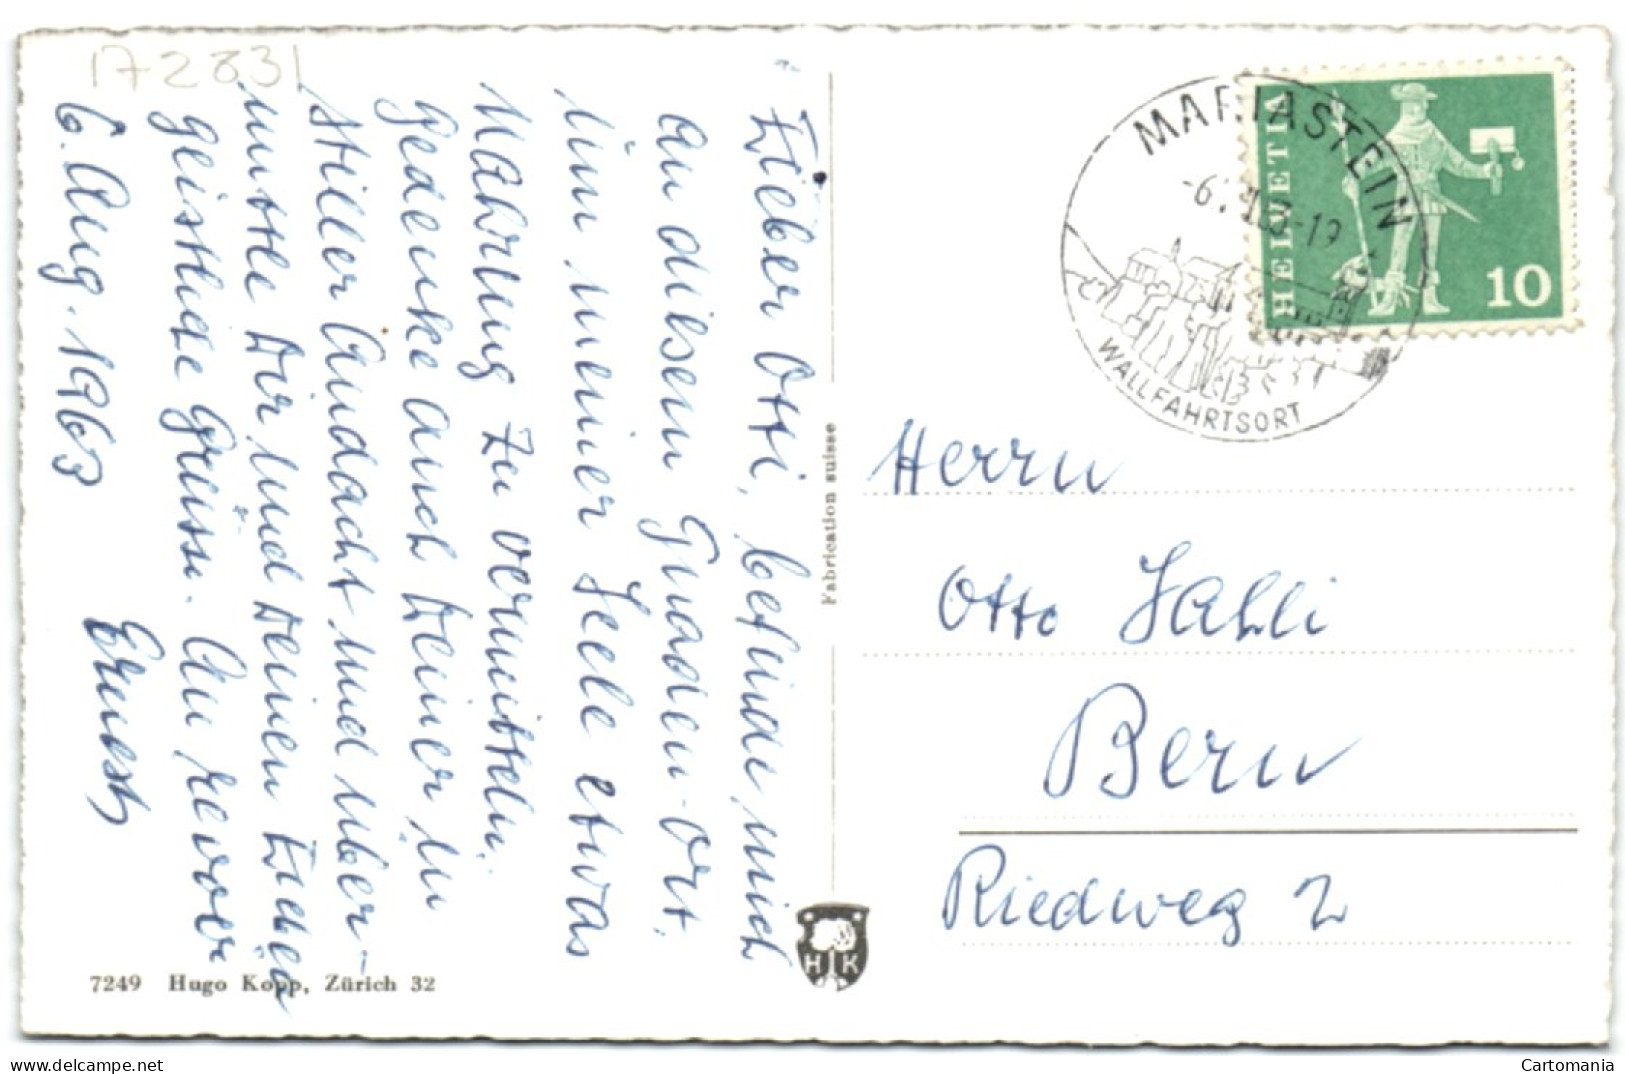 172831
Lieber Otti, befinde mich
an diesem Gnaden-Ort,
um meiner Seele etwas
Nahrung zu vermitteln.
Gedenke auch Deiner in
stiller Andacht und über-
mittle Dir und Deinen Lieben
geistliche Grüsse. Au revoir
6. Aug. 1963
Ernest
Fabrication suisse
7249 Hugo Kopp, Zürich 32
H K
MARIASTEIN
WALLFAHRTSORT
HELVETIA
10
Herrn
Otto Sahli
Bern
Riedweg 2
Cartomania
delcampe.net